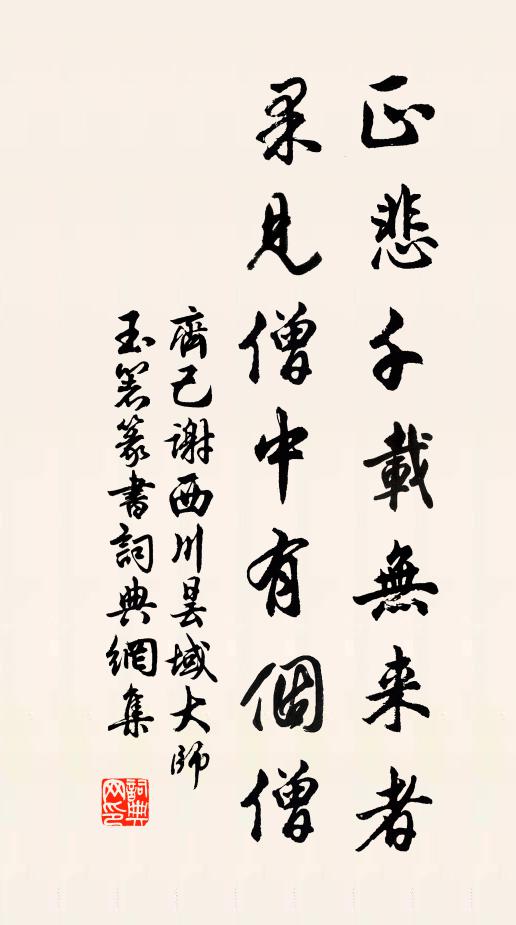 正悲千載無来者
果見僧中有個僧
齊己謝西川曇域大師
玉箸篆書詞典網集
詞典網印